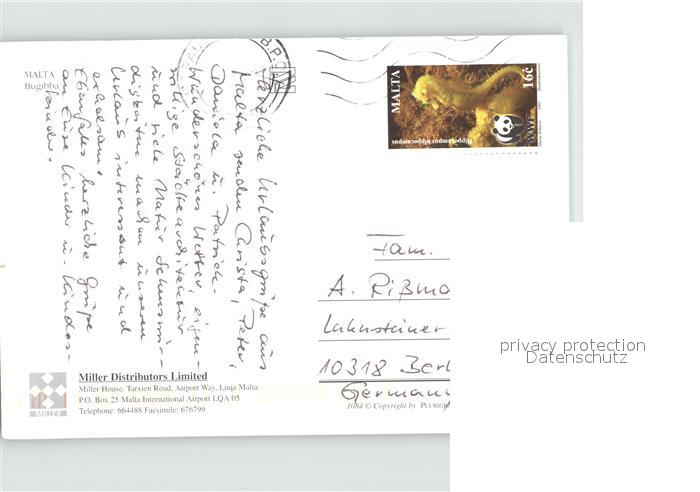 MALTA
Buġibba
Herzliche Urlaubsgrüße aus
Malta senden Christa, Peter,
Daniela u. Patrick.
Wunderschönes Wetter, eigen-
willige Städtearchitektur
und viele Natur Sehenswür-
digkeiten machen unseren
Urlaub interessant und
erholsam.
Ebenfalls herzliche Grüße
an Eure Kinder u. Kindes-
kinder.
MALTA
16c
Hippocampus hippocampus
WWF
Fam.
A. Rißma
Lahnsteiner
10318 Berl
Germany
privacy protection
Datenschutz
MILLER
Miller Distributors Limited
Miller House, Tarxien Road, Airport Way, Luqa Malta,
P.O. Box 25 Malta International Airport LQA 05
Telephone: 664488 Facsimile: 676799
1084 © Copyright by PLURIGR